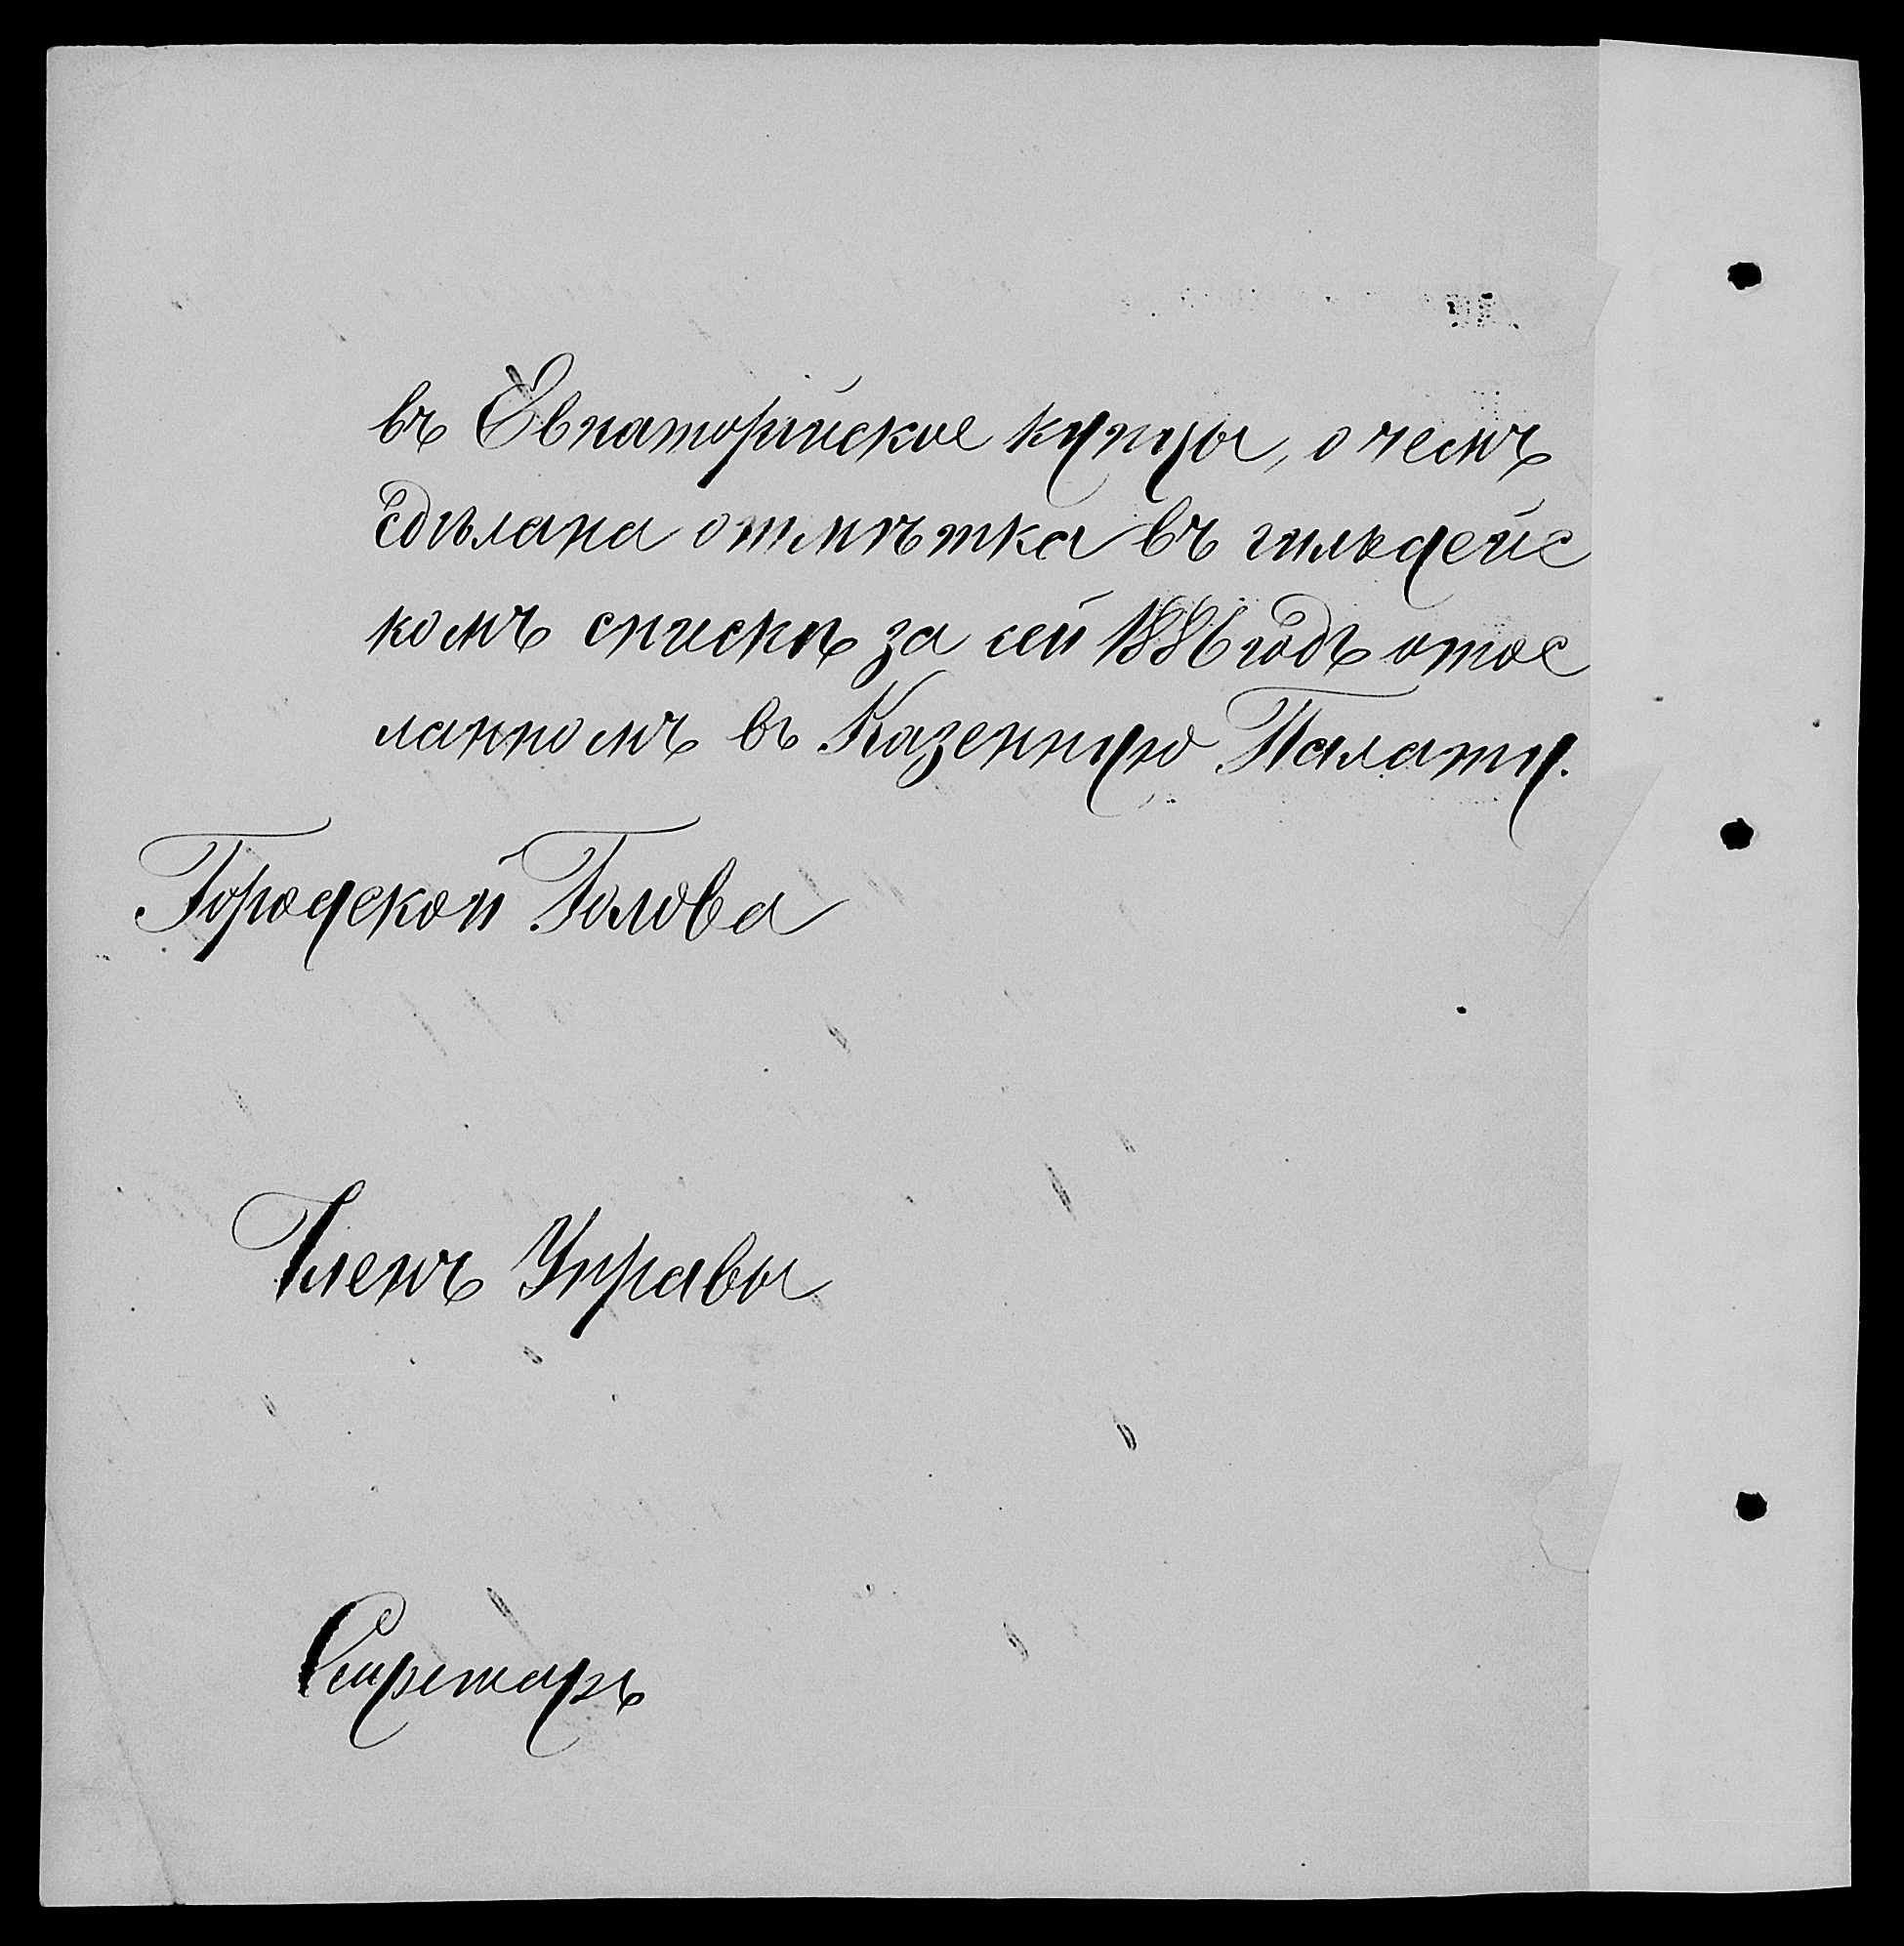 въ Евпаторійское купцы, о чемъ
сдѣлана отмѣтка въ гильдейс
комъ спискѣ за сей 1886 годъ отос
ланномъ въ Казенную Палату.
Городской Голова
Членъ Управы
Секретарь